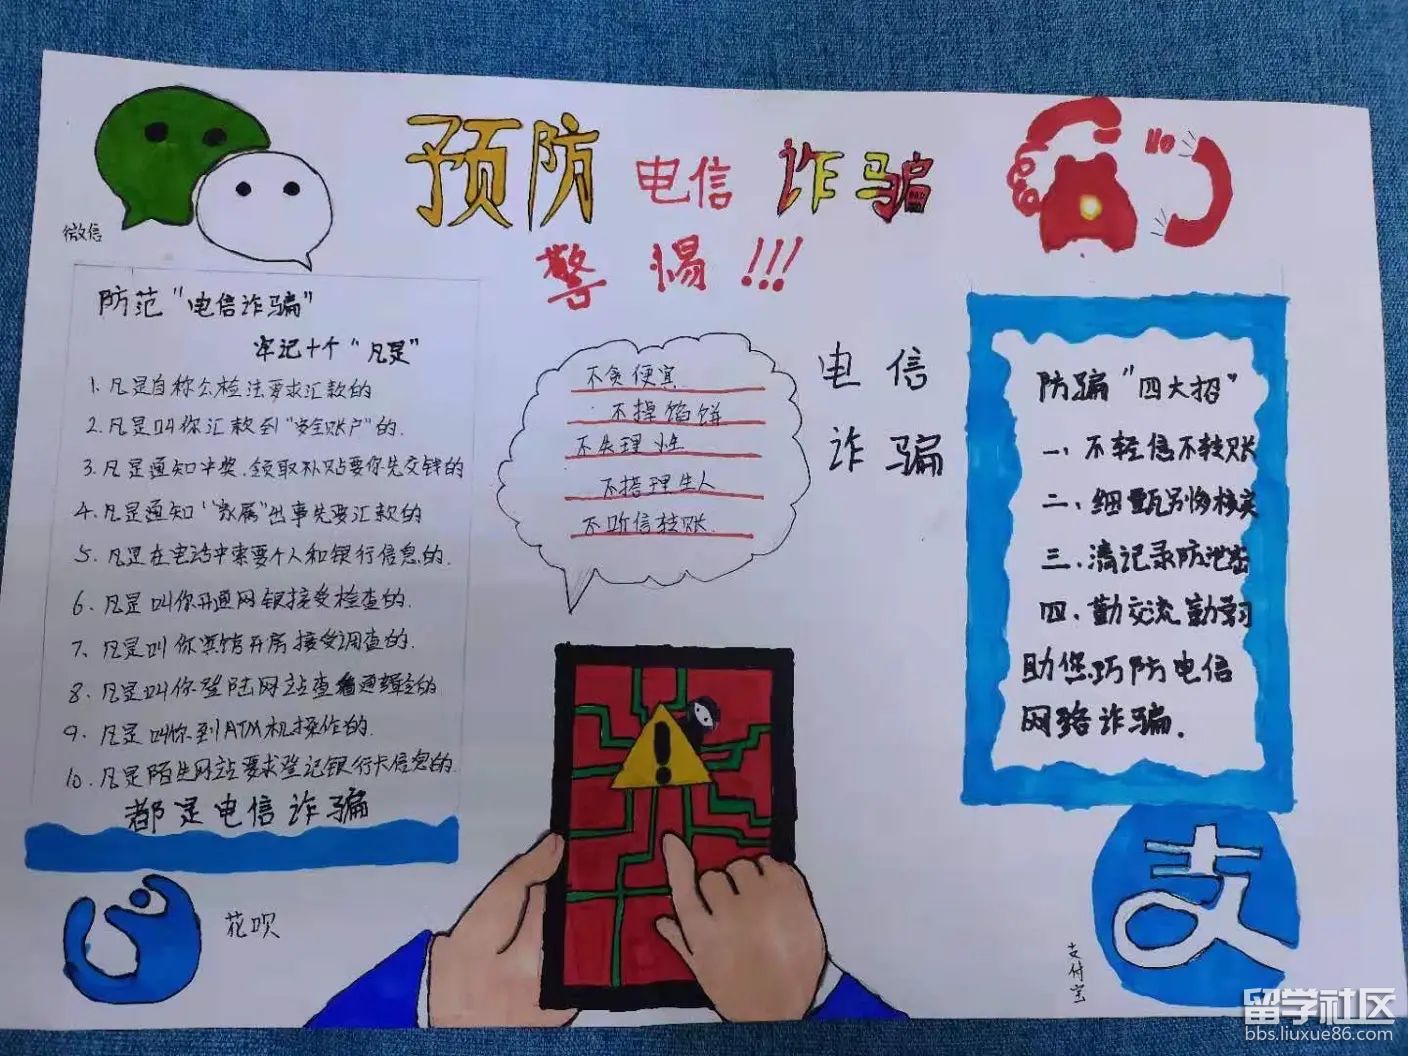 预防电信诈骗
警惕!!!
微信
防范“电信诈骗”
牢记十个“凡是”
1. 凡是自称公检法要求汇款的
2. 凡是叫你汇款到“安全账户”的.
3. 凡是通知中奖.领取补贴要你先交钱的
4. 凡是通知“家属”出事先要汇款的
5. 凡是在电话中索要个人和银行信息的.
6. 凡是叫你开通网银接受检查的.
7. 凡是叫你宾馆开房接受调查的.
8. 凡是叫你登陆网站查看通缉令的
9. 凡是叫你到ATM机操作的.
10. 凡是陌生网站要求登记银行卡信息的.
都是电信诈骗
花呗
不贪便宜
不掉馅饼
不失理性
不搭理生人
不听信转账.
电信
诈骗
防骗“四大招”
一、不轻信不转账
二、细甄别多核实
三、清记录防泄密
四、勤交流勤学习
助您巧防电信
网络诈骗.
支付宝
留学社区
bbs.liuxue86.com